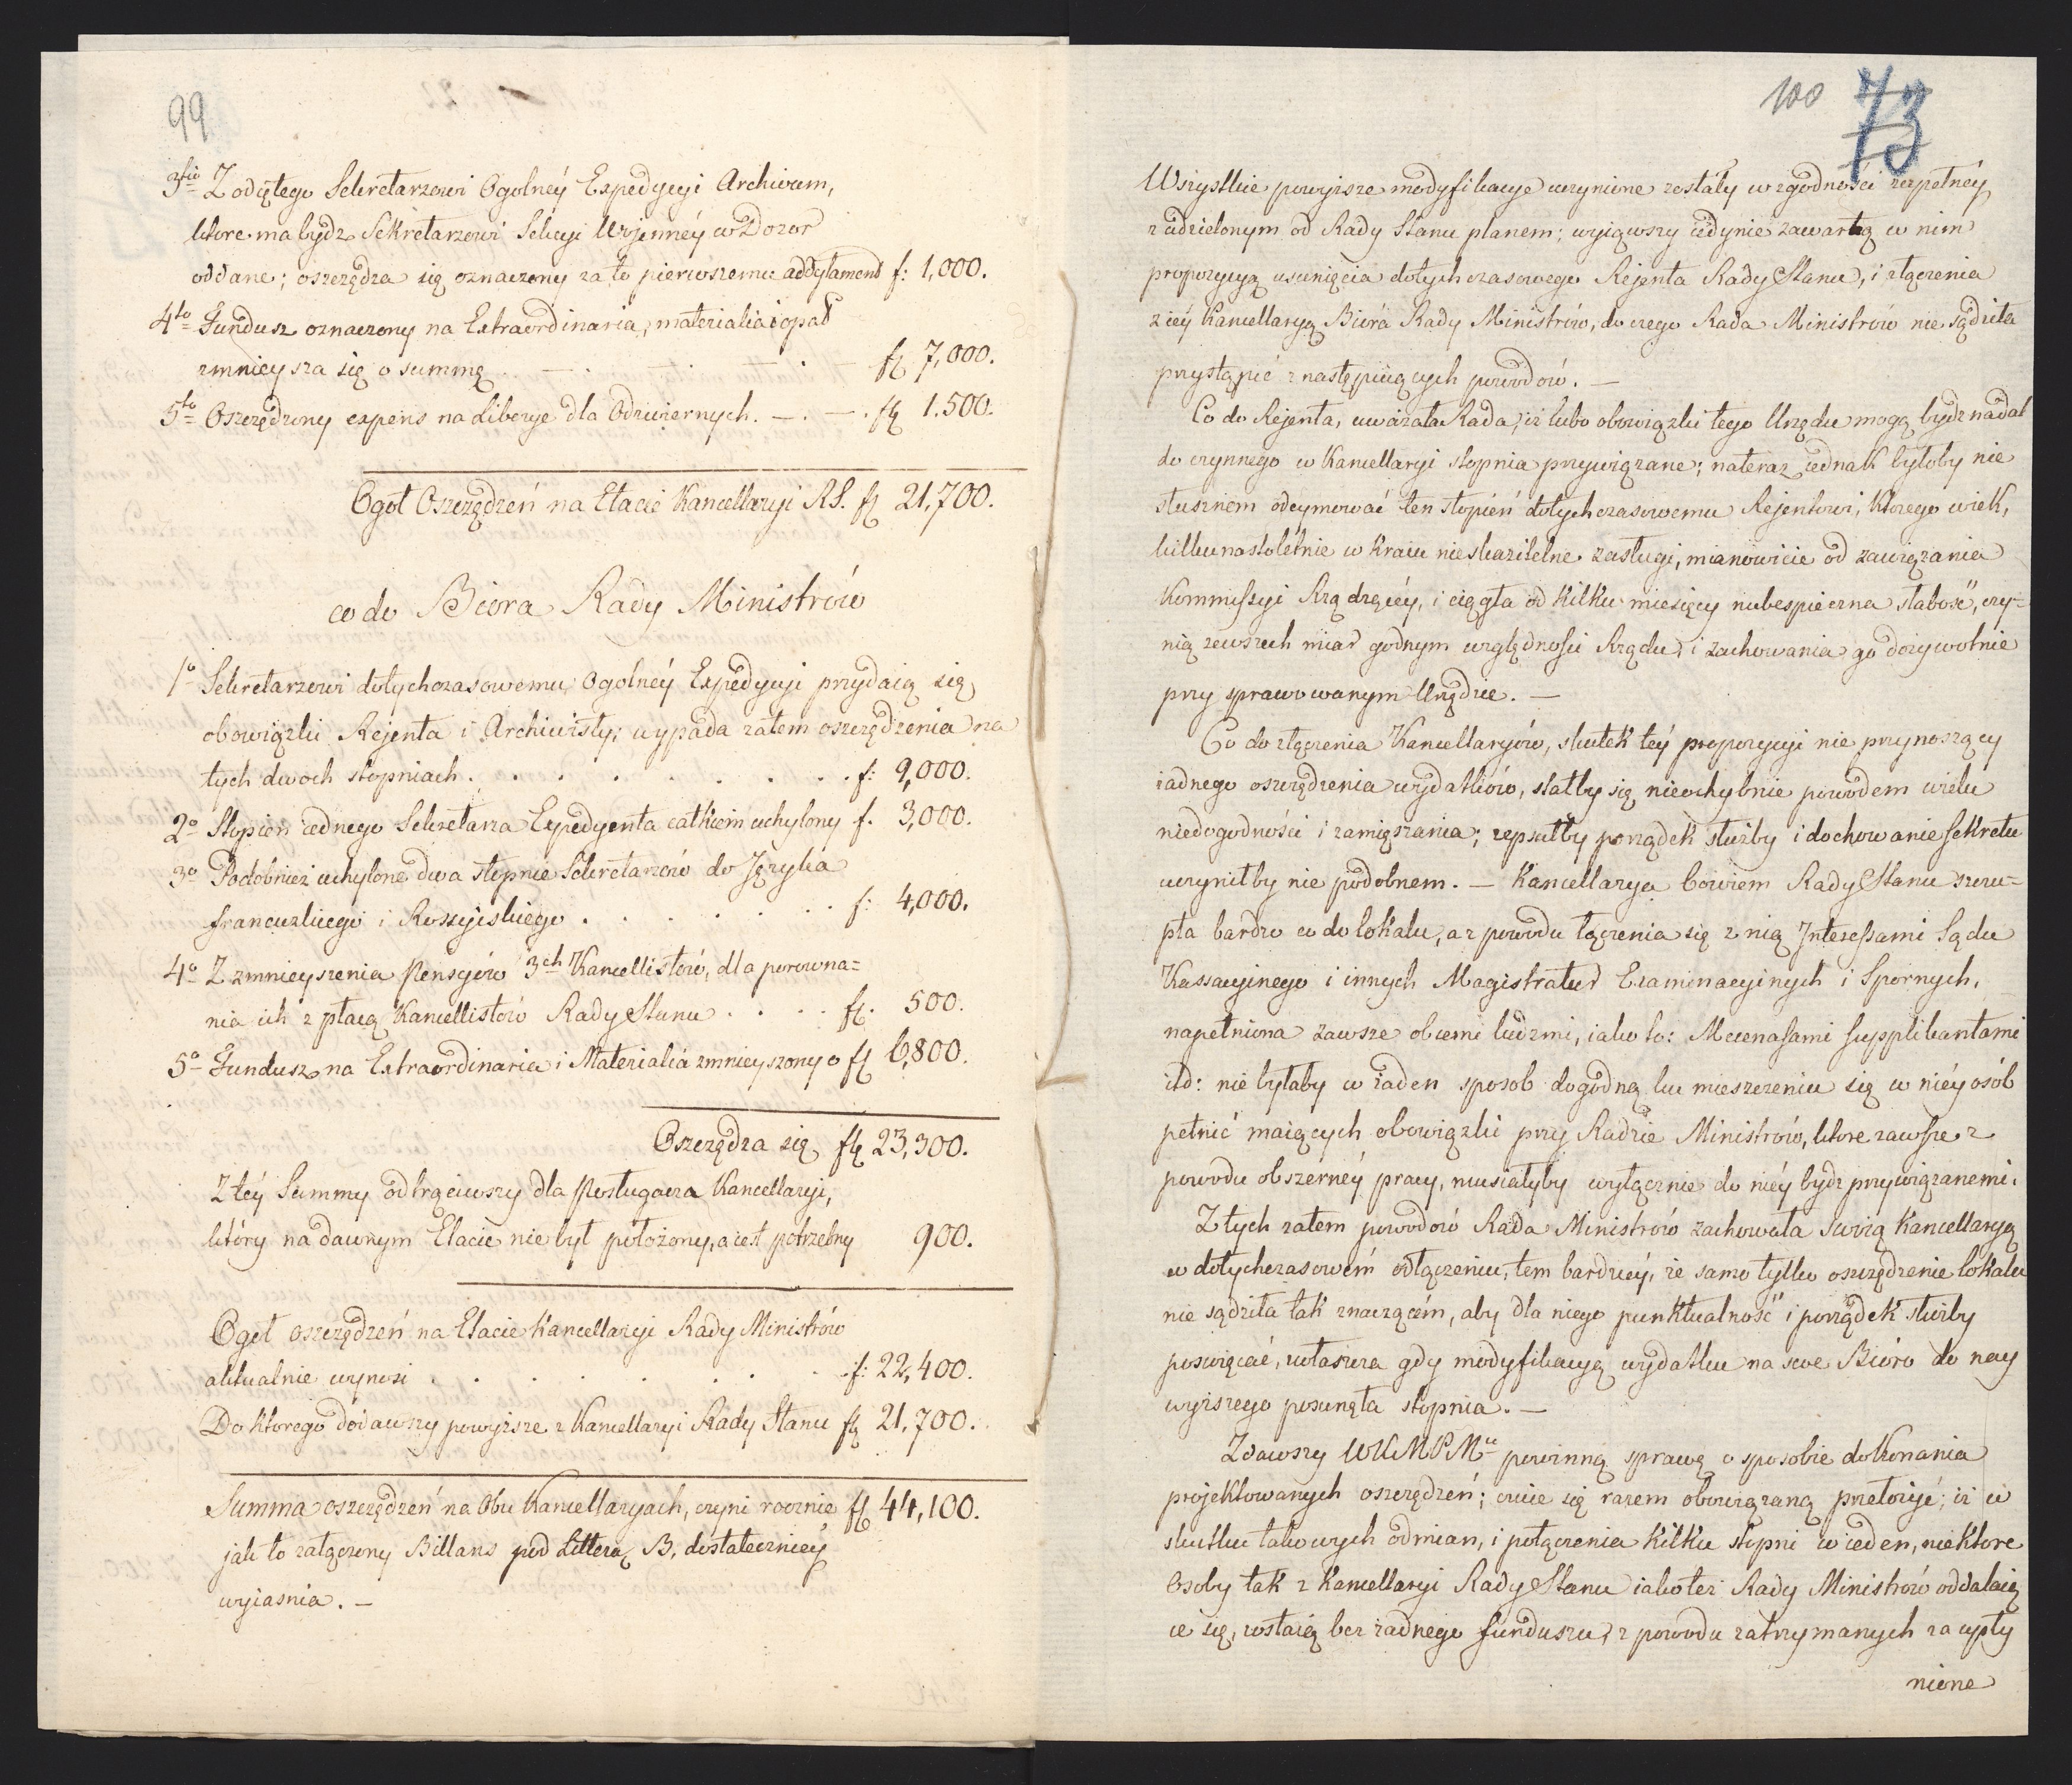 99
3tio Z odiętego Sekretarzowi Ogolnéy Expedycyi Archivum,
ktore ma bydz Sekretarzowi Sekcyi Woienney w Dozor
oddane; oszczędza się oznaczony za to pierwszemu addytament f: 1,000.
4to Fundusz oznaczony na Extraordinaria, materialia i opał
zmnieysza się o summę . — . — . — fl 7,000.
5to Oszczędzony expens na Liberye dla Odzwiernych. — . — . fl 1.500.
Ogoł Oszczędzeń na Etacie Kancellaryi RS. fl 21,700.
co do Biora Rady Ministrów
1o Sekretarzowi dotychczasowemu Ogolnéy Expedycyi przydaią się
obowiązki Rejenta i Archiwisty; wypada zatem oszczędzenia na
tych dwoch stopniach . . . . . . . . . f: 9,000.
2o Stopień iednego Sekretarza Expedyenta całkiem uchylony f. 3,000.
3o Podobnież uchylone dwa stopnie Sekretarzów do Języka
francuzkiego i Rossyiskiego . . . . . . . f: 4,000.
4o Z zmnieyszenia Pensyów 3ch Kancellistów, dla porowna=
nia ich z płacą Kancellistów Rady Stanu . . . . fl. 500.
5o Fundusz na Extraordinaria i Materialia zmnieyszony o fl 6,800.
Oszczędza się fl 23,300.
Z téy Summy odtrąciwszy dla Posługacza Kancellaryi,
który na dawnym Etacie nie był położony, a iest potrzebny 900.
Ogoł oszczędzeń na Etacie Kancellaryi Rady Ministrów
aktualnie wynosi . . . . . . . . f: 22,400.
Do ktorego dodawszy powyższe z Kancellaryi Rady Stanu fl 21,700.
Summa oszczędzeń na Obu Kancellaryach, czyni rocznie fl 44,100.
jak to załączony Billans pod Litterą B. dostateczniéy
wyiasnia. —
100 73
Wszystkie powyższe modyfikacye uczynione zostały w zgodności zupełnéy
z udzielonym od Rady Stanu planem; wyiąwszy iedynie zawartą w nim
propozycyą usunięcia dotychczasowego Rejenta Rady Stanu, i złączenia
z iéy Kancellaryą Biora Rady Ministrów, do czego Rada Ministrów nie sądziła
przystąpić z następuiących powodów. —
Co do Rejenta, uważała Rada, iż lubo obowiązki tego Urzędu mogą bydz nadal
do czynnego w Kancellaryi stopnia przywiązane; nateraz iednak byłoby nie
słusznem odeymować ten stopień dotychczasowemu Rejentowi, ktorego wiek,
kilkunastoletnie w Kraiu nieskazitelne zasługi, mianowicie od zawiązania
Kommissyi Rządzącéy, i ciągła od kilku miesięcy niebespieczna słabość, czy=
nią zewszech miar godnym względnosci Rządu, i zachowania go dożywotnie
przy sprawowanym Urzędzie. —
Co do złączenia Kancellaryów, skutek téy propozycyi nie przynoszący
żadnego oszczędzenia wydatków, stałby się nieochybnie powodem wielu
niedogodności i zamięszania; zepsułby porządek służby i dochowanie sekretu
uczyniłby nie podobnem. — Kancellarya bowiem Rady Stanu szczu=
pła bardzo co do lokalu, a z powodu łączenia się z nią Interessami Sądu
Kassacyinego i innych Magistratur Examinacyinych i Spornych,
napełniona zawsze obcemi ludzmi, iako to: Mecenasami supplikantami
itd: nie byłaby w żaden sposob dogodną ku mieszczeniu się w niéy osób
pełnić maiących obowiązki przy Radzie Ministrów, ktore zawsze z
powodu obszernéy pracy, musiałyby wyłącznie do niéy bydz przywiązanemi.
Z tych zatem powodów Rada Ministrów zachowała swoią Kancellaryą
w dotychczasowém odłączeniu, tem bardziéy, że samo tylko oszczędzenie lokalu
nie sądziła tak znaczącém, aby dla niego punktualność i porządek służby
poswięcać, zwłaszcza gdy modyfikacyą wydatku na swe Bióro do nay
wyższego posunęła stopnia. —
Zdawszy WKMPMu powinną sprawę o sposobie dokonania
projektowanych oszczędzeń; czuie się razem obowiązaną przełożyć; iż w
skutku takowych odmian, i połączenia kilku stopni w ieden, niektore
Osoby tak z Kancellaryi Rady Stanu iako też Rady Ministrów oddalaią
ce się, zostaią bez żadnego funduszu, z powodu zatrzymanych za upły
nione